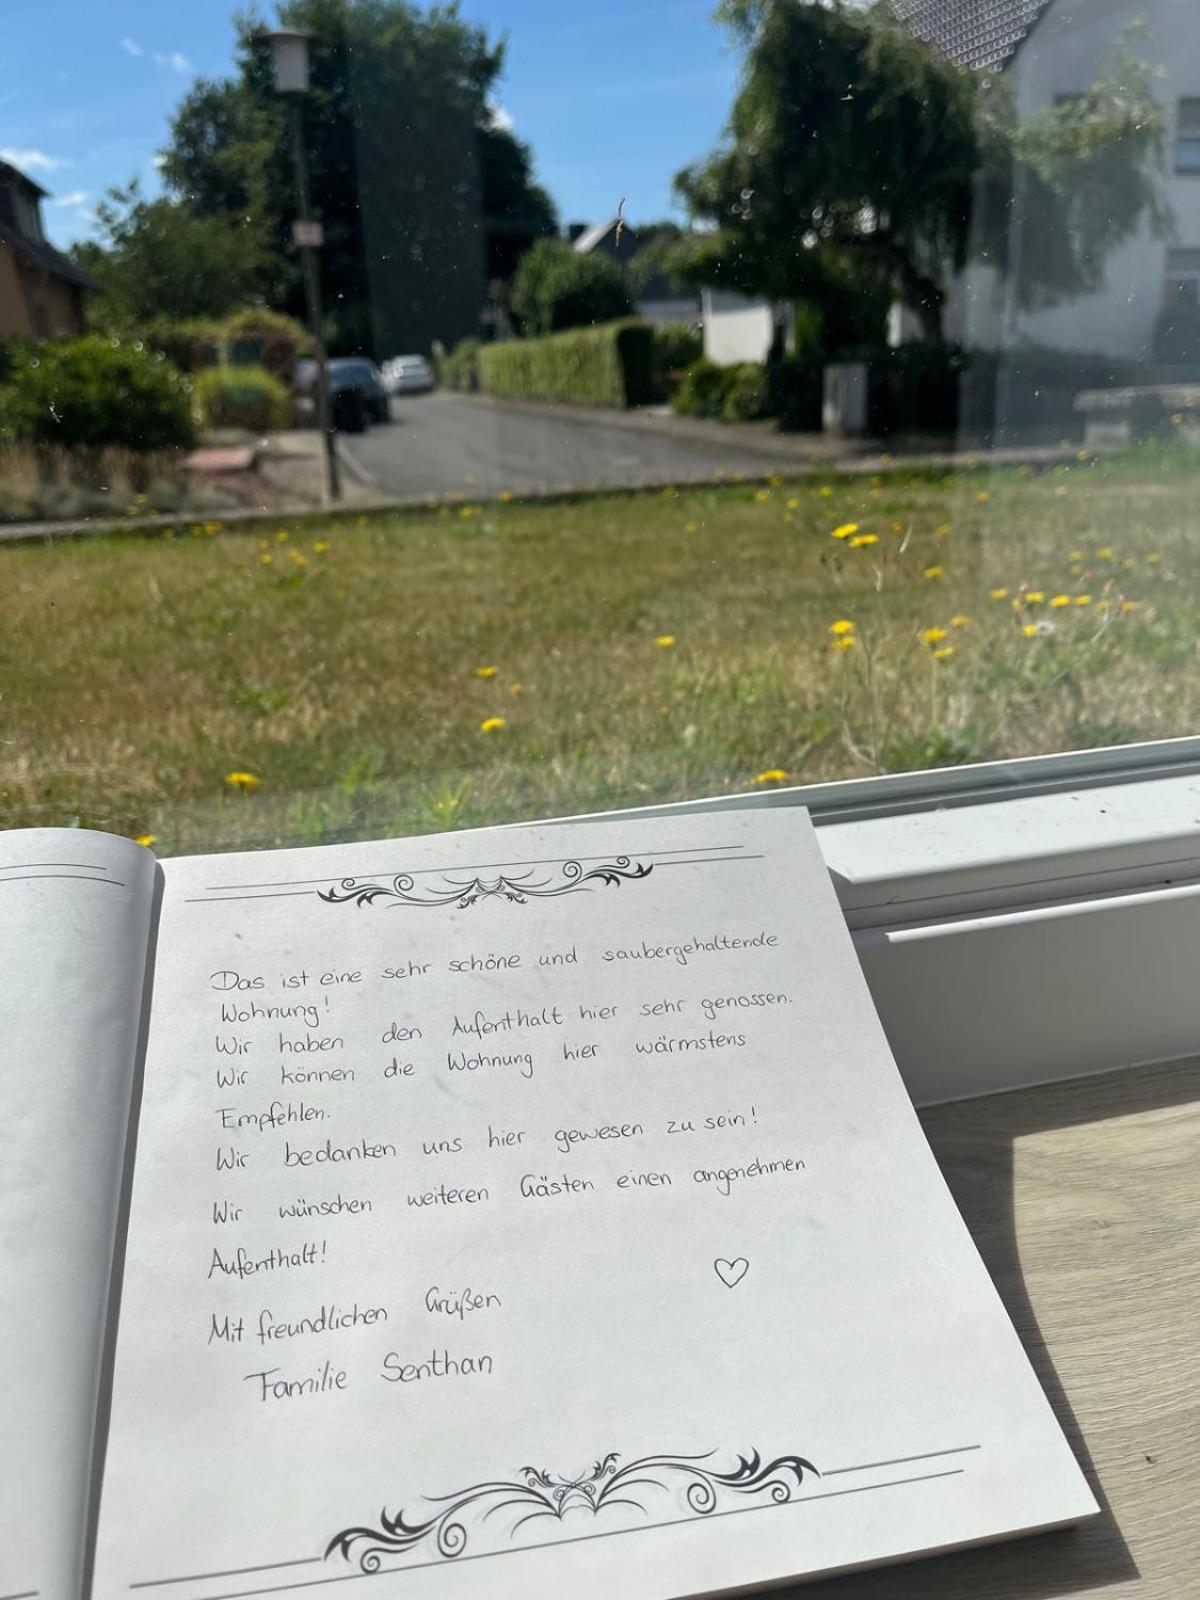 Das ist eine sehr schöne und saubergehaltende
Wohnung!
Wir haben den Aufenthalt hier sehr genossen.
Wir können die Wohnung hier wärmstens
Empfehlen.
Wir bedanken uns hier gewesen zu sein!
Wir wünschen weiteren Gästen einen angenehmen
Aufenthalt!
Mit freundlichen Grüßen
Familie Senthan